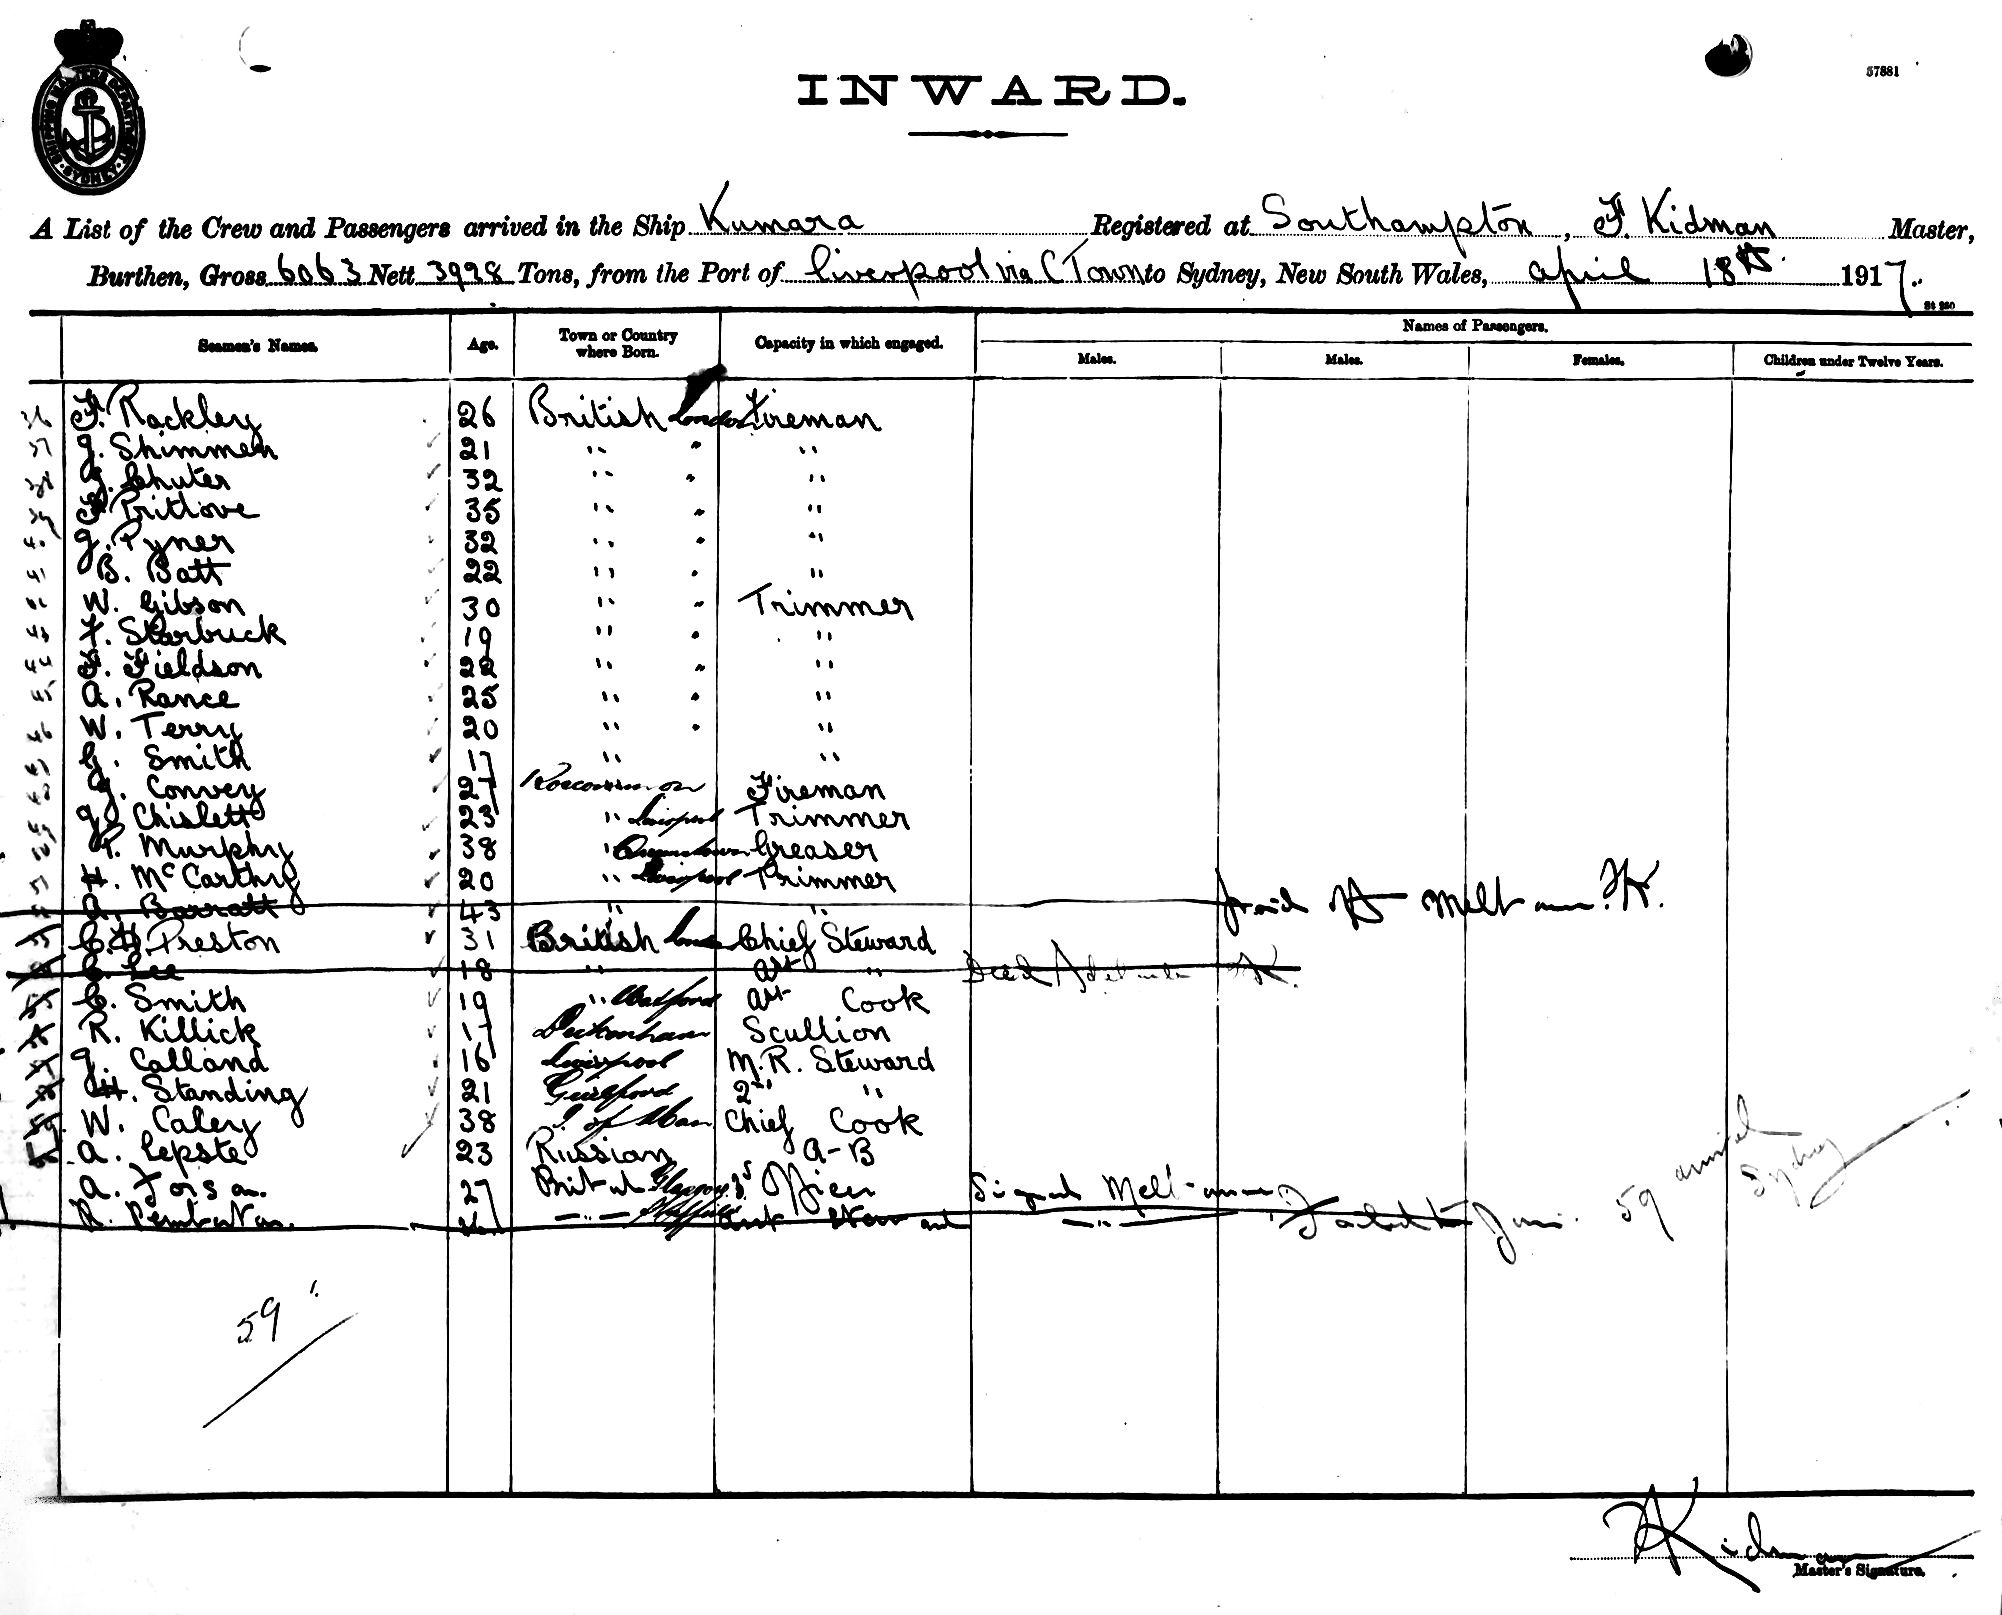 SHIPPING MASTERS DEPARTMENT SYDNEY
57881
INWARD.
A List of the Crew and Passengers arrived in the Ship Kumara Registered at Southampton, F. Kidman Master,
Burthen, Gross 6063 Nett 3998 Tons, from the Port of Liverpool via C Town to Sydney, New South Wales, April 18th 1917.
Names of Passengers.
Seamen's Names. Age. Town or Country where Born. Capacity in which engaged. Males. Males. Females. Children under Twelve Years.
F. Rackley 26 British London Fireman
37 J. Shimmen 21 " " "
G. Chuter 32 " " "
F. Pritlove 35 " " "
J. Pyner 32 " " "
41 B. Batt 22 " " "
W. Gibson 30 " " Trimmer
F. Starbuck 19 " " "
44 F. Fieldson 22 " " "
45 A. Rance 25 " " "
46 W. Terry 20 " " "
G. Smith 17 " "
J. Convey 27 Roscommon Fireman
J. Chislett 23 " Liverpool Trimmer
P. Murphy 38 " Queenstown Greaser
H. McCarthy 20 " Liverpool Trimmer
A. Barratt 43 " " paid off Melb
C. H. Preston 31 British London Chief Steward
C. Lee 18 " Asst " Adelaide
C. Smith 19 " Watford Asst Cook
R. Killick 17 Scullion
J. Calland 16 Liverpool M.R. Steward
H. Standing 21 Guilford 2nd "
59 W. Caley 38 I of Man Chief Cook
A. Lepste 23 Russian A-B
A. 27 British Glasgow 3rd Officer Signed Melb
R. Asst Steward " Failed to Join
59 arrived Sydney
59
F Kidman
Master's Signature.